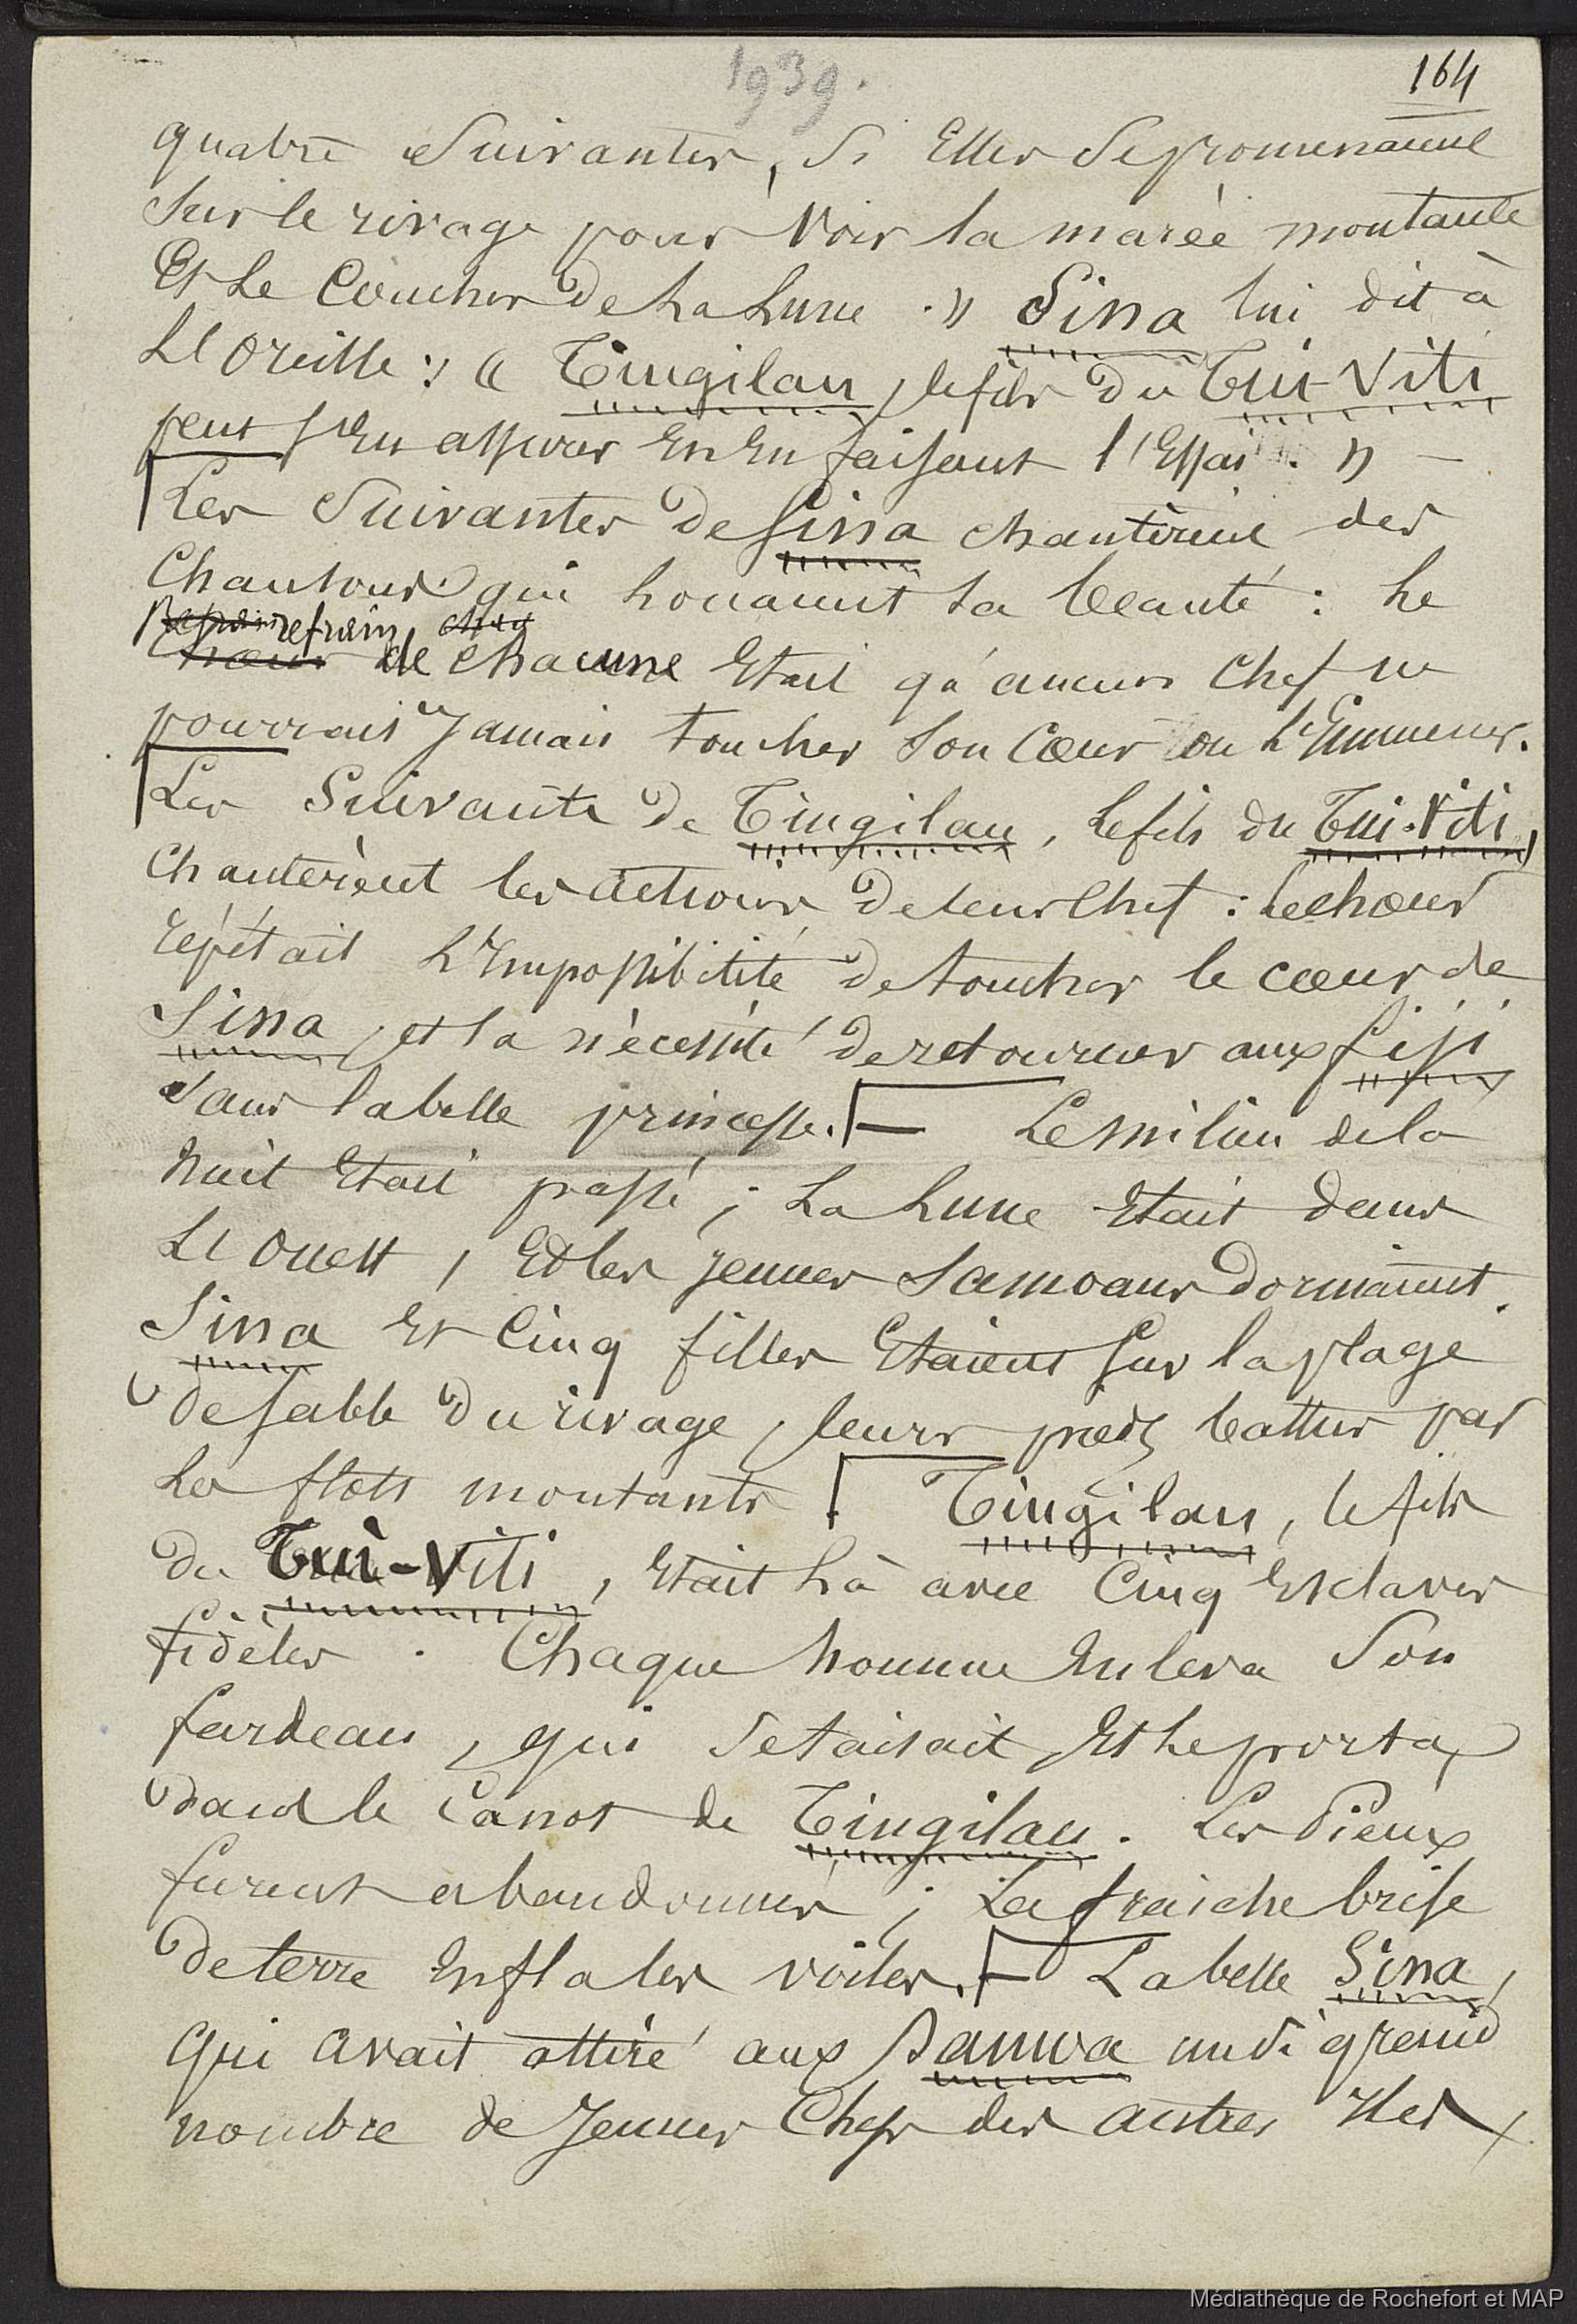 1939.
164
quatre Suivantes, Si Elles Se promenaient
Sur le rivage pour Voir la marée montante
Et Le Coucher De La Lune. » Sina lui dit à
L'Oreille : « Tingilau, le fils du Tui-Viti
peut s'En assurer En En faisant l'Essai. » —
Les Suivantes De Sina chantèrent des
Chansons qui Louaient sa beauté : Le
refrain
de chacune Etait q'aucun Chef ne
pourrait Jamais toucher Son Cœur ou L'Emmener.
Les Suivants De Tingilau, Le fils du Tui-Viti,
Chantèrent les actions De leur Chef : Le chœur
répétait L'Impossibilité De toucher le cœur de
Sina, et la nécessité De retourner aux Fiji
Sans la belle princesse. — Le milieu de la
Nuit Etait passé ; La Lune Etait dans
L'Ouest, Et les Jeunes Samoans Dormaient.
Sina Et Cinq filles Etaient Sur la plage
de Sable du rivage, leurs pieds battus par
Les flots montants. Tingilau, le fils
du Tui-Viti, Etait Là avec Cinq Esclaves
fidèles. Chaque homme Enleva Son
fardeau, qui Se taisait Et Le porta
dans le Canot de Tingilau. Les Pieux
furent abandonnés ; La fraiche brise
De terre Enfla les voiles. — La belle Sina,
Qui avait attiré aux Samoa un si grand
nombre de Jeunes Chefs des autres Iles
Médiathèque de Rochefort et MAP